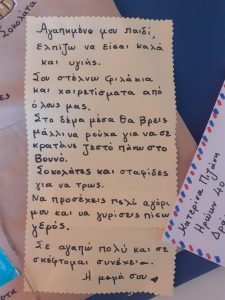 Σοκολάτα
Αγαπημένο μου παιδί,
ελπίζω να είσαι καλά
και υγιής.
Σου στέλνω φιλάκια
και χαιρετίσματα από
όλους μας.
Στο δέμα μέσα θα βρεις
μάλλινα ρούχα για να σε
κρατάνε ζεστό πάνω στο
Βουνό.
Σοκολάτες και σταφίδες
για να τρως.
Να προσέχεις πολύ αγόρι
μου και να γυρίσεις πίσω
γερός.
Σε αγαπώ πολύ και σε
σκέφτομαι συνέχεια.
Η μαμά σου
Κατερίνα
Ηρώων 40
Δρα